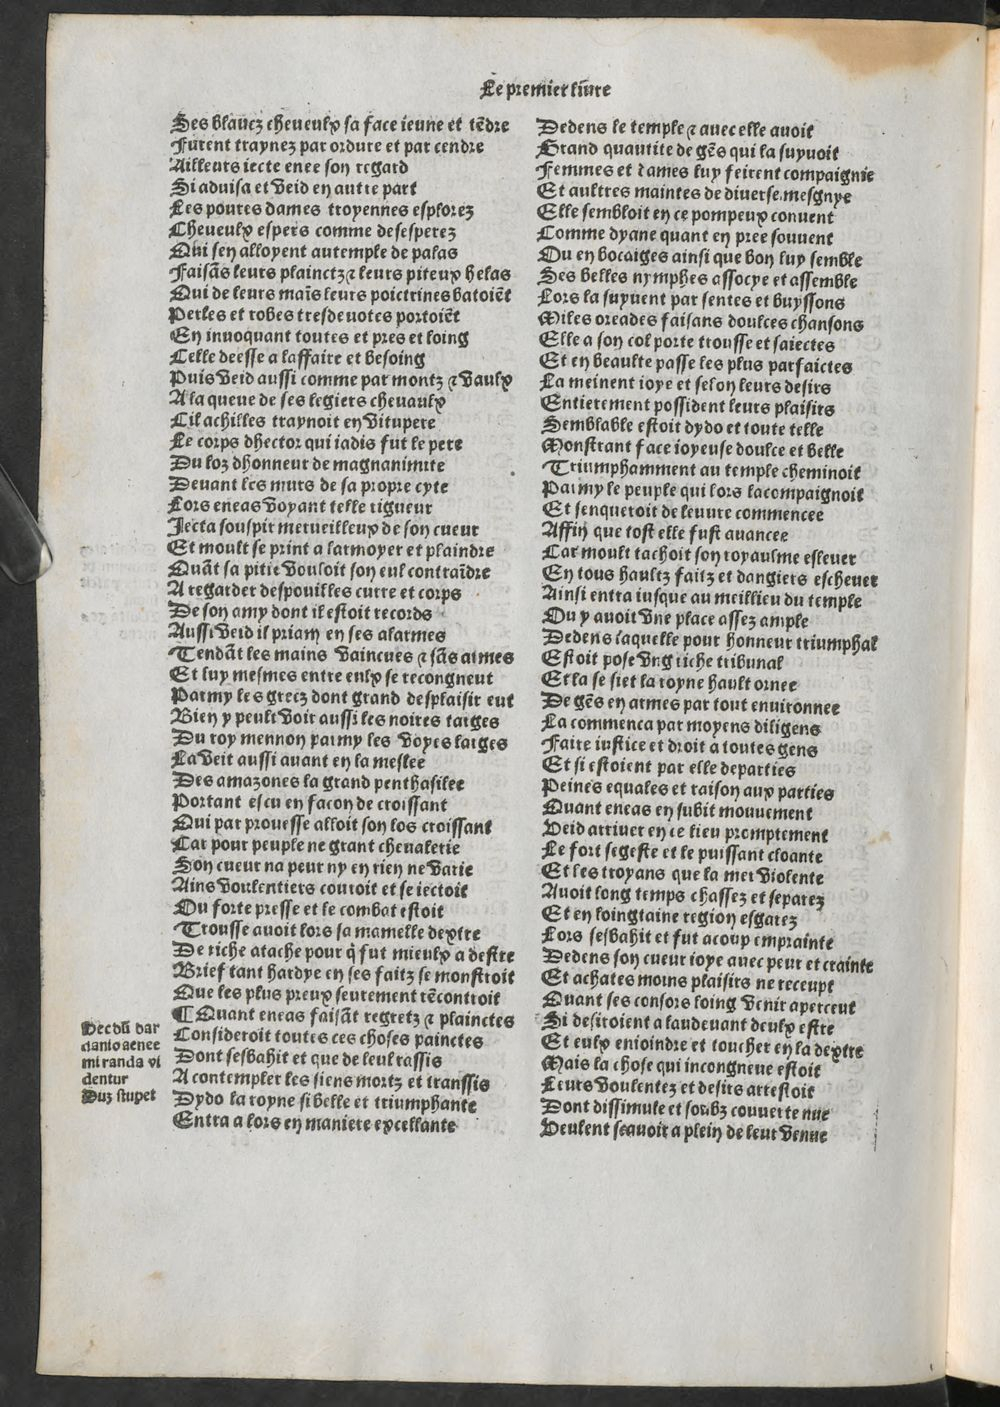 Le premier liure
Ses blaucz cheueulx sa face ieune et tẽdre
Furent traynez par ordure et par cendre
Ailleurs iecte enee son regard
Si aduisa et veid en autre part
Les poures dames troyennes esplorez
Cheueulx espers comme desesperez
Qui sen alloyent au temple de palas
Faisãs leurs plainctz ⁊ leurs piteux helas
Qui de leurs maĩs leurs poictrines batoiẽt
Perles et robes tresdeuotes portoiẽt
En inuoquant toutes et pres et loing
Celle deesse a laffaire et besoing
Puis veid aussi comme par montz ⁊ vaulx
A la queue de ses legiers cheuaulx
Cil achilles traynoit en vitupere
Le corps dhector qui iadis fut le pere
Du loz dhonneur de magnanimite
Deuant les murs de sa propre cyte
Lors eneas voyant telle rigueur
Jecta souspir merueilleux de son cueur
Et moult se print a larmoyer et plaindre
Quãt sa pitie vouloit son eul contraĩdre
A regarder despouilles curre et corps
De son amy dont il estoit records
Aussi veid il priam en ses alarmes
Tendãt les mains vaincues ⁊ sãs armes
Et luy mesmes entre eulx se recongneut
Parmy les grecz dont grand desplaisir eut
Bien y peult voir aussi les noires targes
Du roy mennon parmy les voyes larges
La veit aussi auant en la meslee
Des amazones la grand penthasilee
Portant escu en facon de croissant
Qui par prouesse alloit son los croissant
Car pour peuple ne grant cheualerie
Son cueur na peur ny en rien ne varie
Ains voulentiers couroit et se iectoit
Ou forte presse et le combat estoit
Trousse auoit lors sa mamelle dextre
De riche atache pour q̃ fut mieulx a destre
Brief tant hardye en ses faitz se monstroit
Que les plus preux seurement rẽcontroit
¶ Quant eneas faisãt regretz ⁊ plainctes
Consideroit toutes ces choses painctes
Dont sesbahit et que de leul rassis
A contempler les siens mortz et transsis
Dydo la royne si belle et triumphante
Entra a lors en maniere excellante
Hec dũ dar
danio aenee
mi randa vi
dentur
Duz stupet
Dedens le temple ⁊ auec elle auoit
Grand quantite de gẽs qui la suyuoit
Femmes et dames luy feirent compaignie
Et aultres maintes de diuerse mesgnye
Elle sembloit en ce pompeux conuent
Comme dyane quant en pree souuent
Ou en bocaiges ainsi que bon luy semble
Ses belles nymphes assocye et assemble
Lors la suyuent par sentes et buyssons
Miles oreades faisans doulces chansons
Elle a son col porte trousse et saiectes
Et en beaulte passe les plus parfaictes
La meinent ioye et selon leurs desirs
Entierement possident leurs plaisirs
Semblable estoit dydo et toute telle
Monstrant face ioyeuse doulce et belle
Triumphamment au temple cheminoit
Parmy le peuple qui lors lacompaignoit
Et senqueroit de leuure commencee
Affin que tost elle fust auancee
Car moult tachoit son royaulme esleuer
En tous haultz faitz et dangiers escheuer
Ainsi entra iusque au meillieu du temple
Ou y auoit vne place assez ample
Dedens laquelle pour honneur triumphal
Estoit pose vng riche tribunal
Et la se siet la royne hault ornee
De gẽs en armes par tout enuironnee
La commenca par moyens diligens
Faire iustice et droit a toutes gens
Et si estoient par elle departies
Peines equales et raison aux parties
Quant eneas en subit mouuement
Veid arriuer en ce lieu promptement
Le fort segeste et le puissant cloante
Et les troyans que la mer violente
Auoit long temps chassez et separez
Et en loingtaine region esgarez
Lors sesbahit et fut acoup emprainte
Dedens son cueur ioye auec peur et crainte
Et achates moins plaisirs ne receupt
Quant ses consors loing venir aperceut
Si desiroient alaudeuant deulx estre
Et eulx enioindre et toucher en la dextre
Mais la chose qui incongneue estoit
Leurs voulentez et desirs arrestoit
Dont dissimule et soubz couuerte nue
Veulent scauoir a plein de leur venue